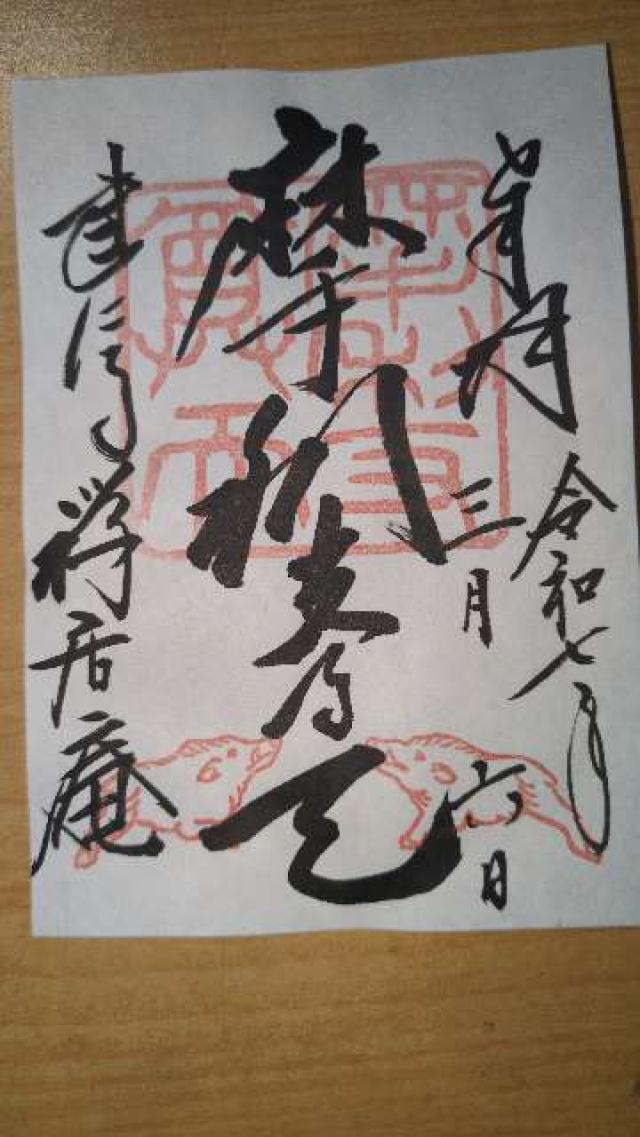 奉拝
令和七年
三月六日
摩利支尊天
建仁寺禅居庵